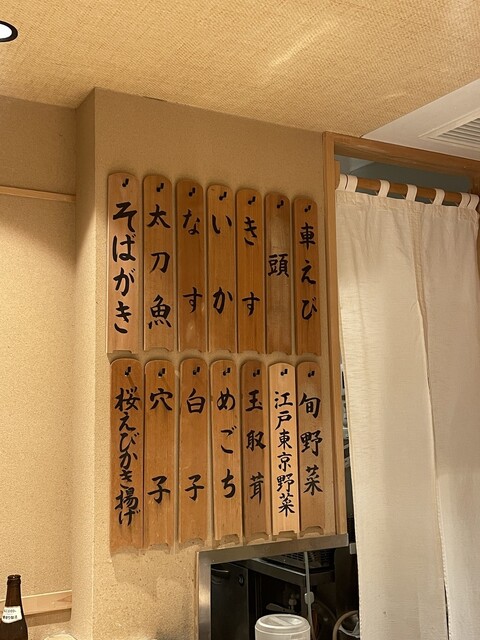 車えび
頭
きす
いか
なす
太刀魚
そばがき
旬野菜
江戸東京野菜
玉取茸
めごち
白子
穴子
桜えびかき揚げ